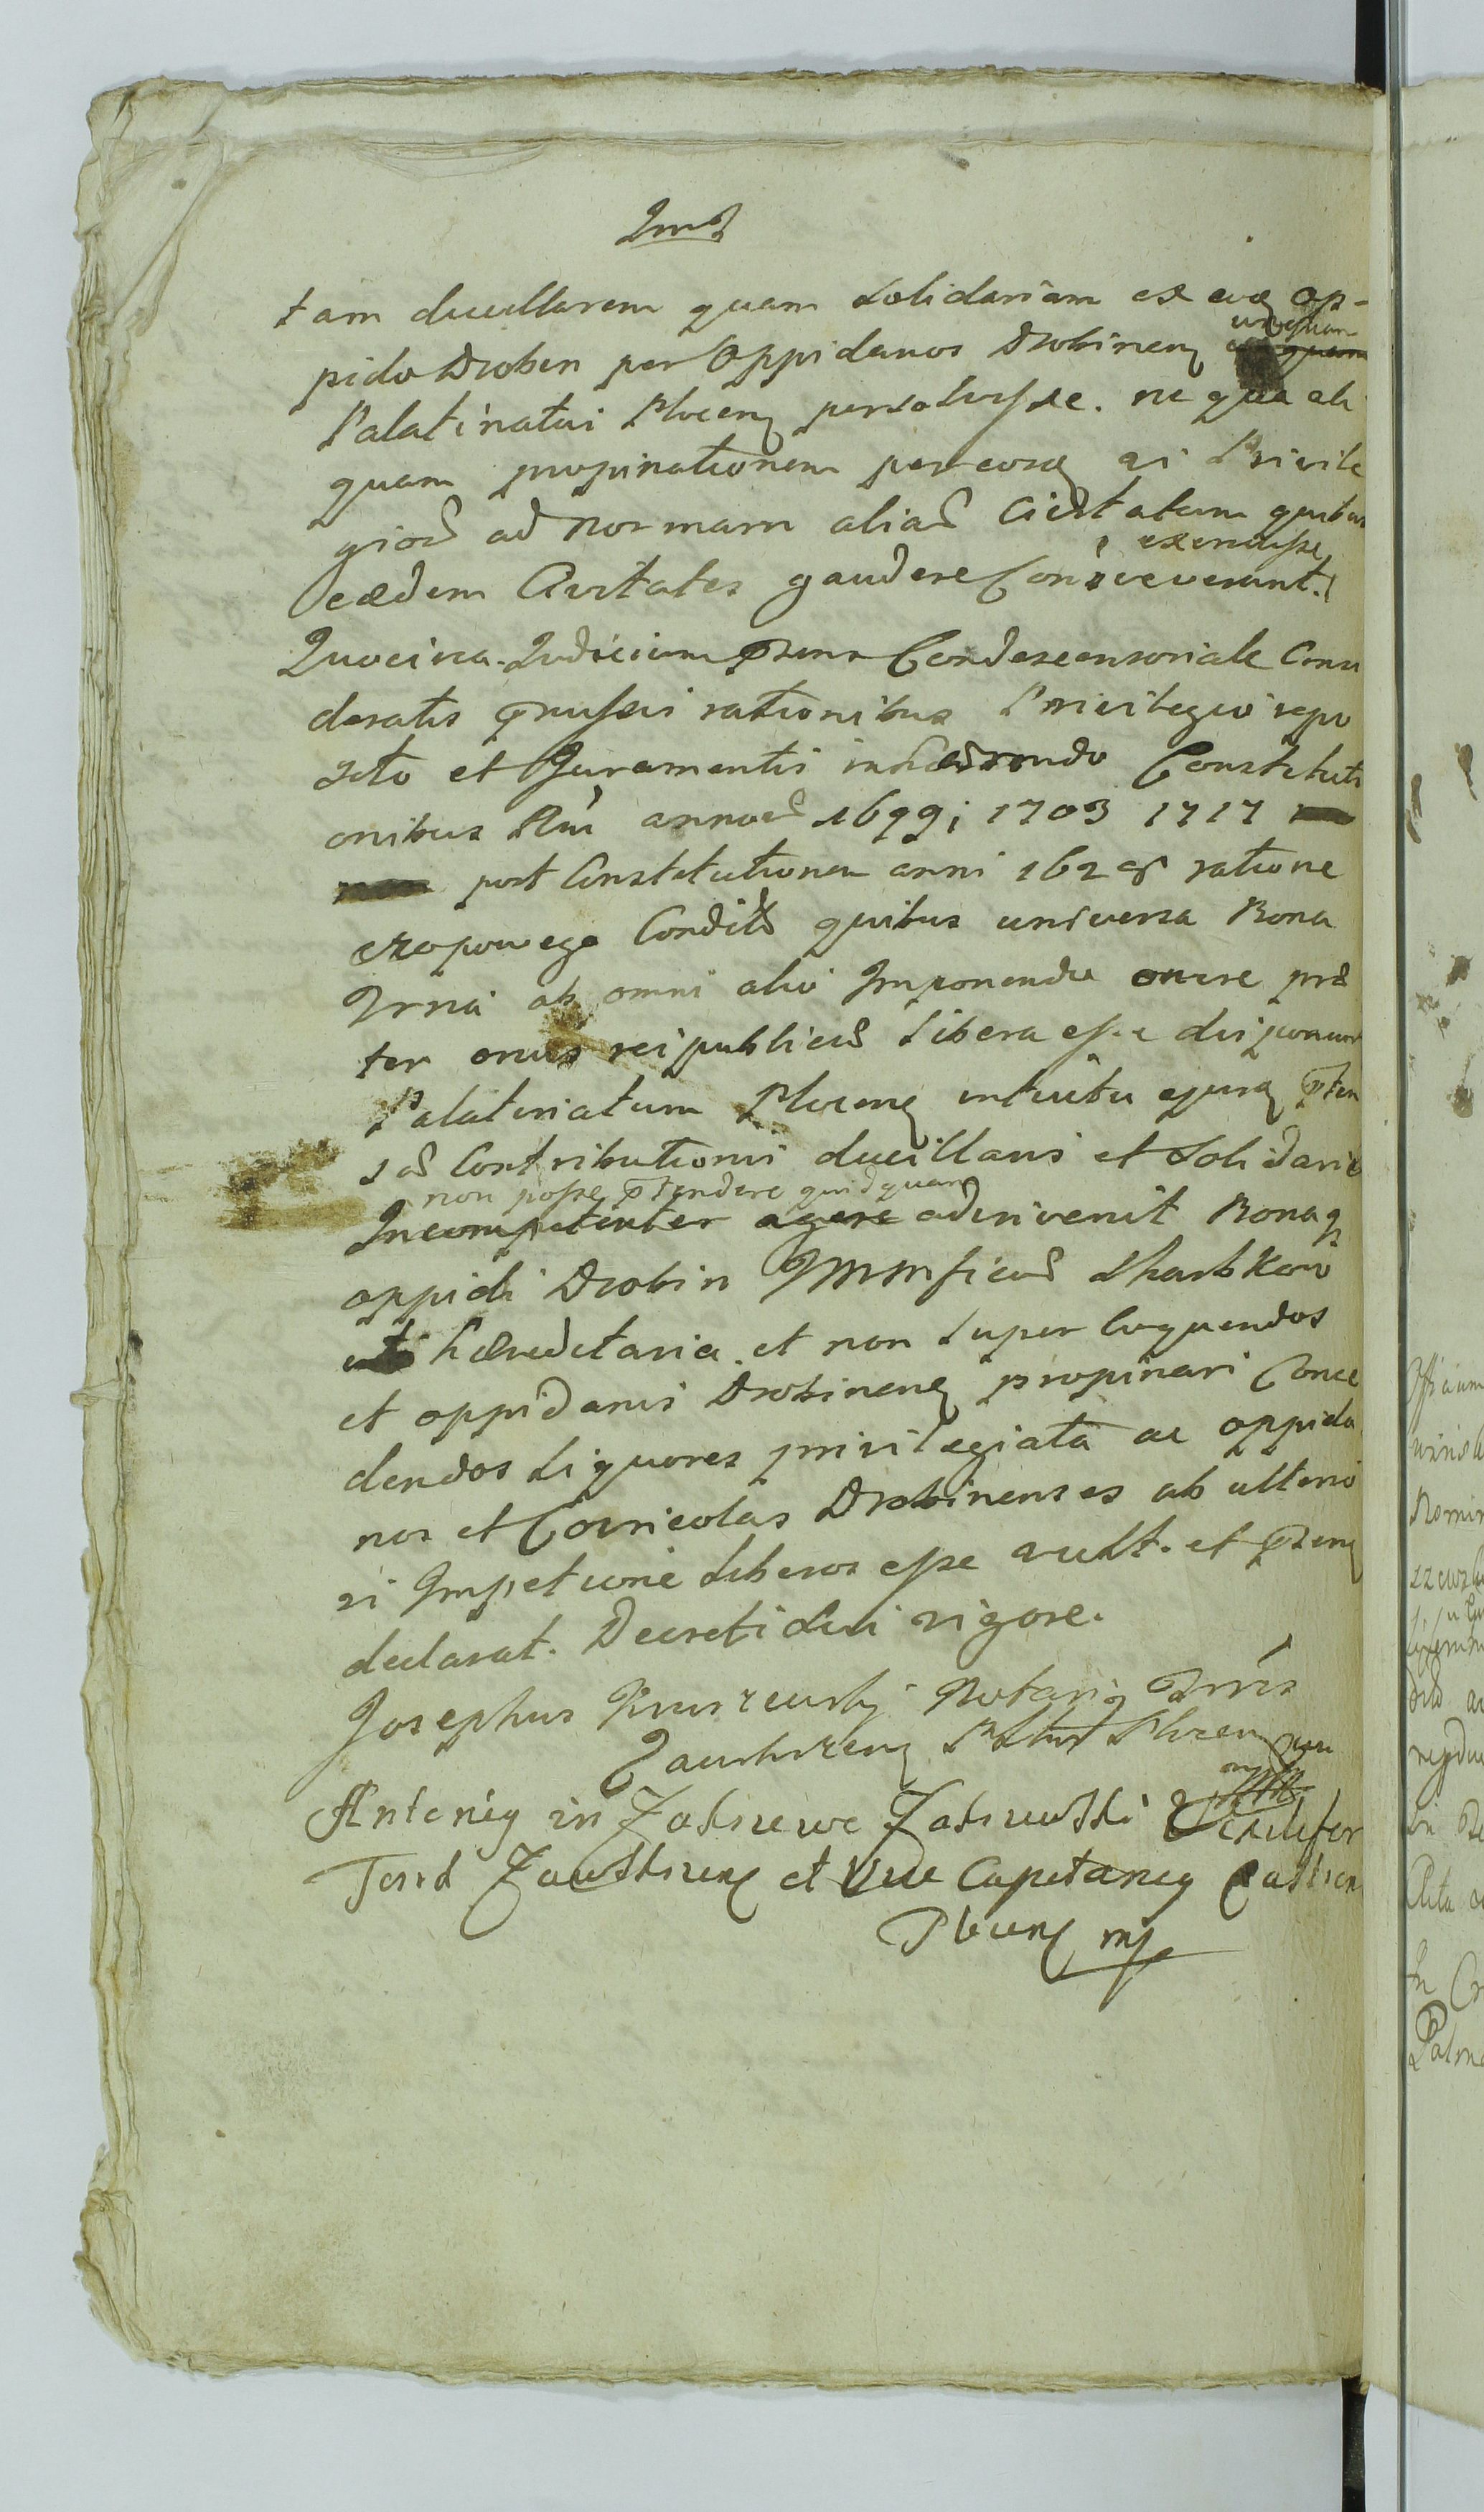 tam ducillarem quam solidariam ex eoq op-
pido Drobin per Oppidanos Drobinen unquam
Palatinatui Plocen persolvisse. neque ali
quam propinationem per eosq vi Privile
gior ad normam aliar Civitatum quibus
exercuisse
eædem Civitates gaudere Consveverunt.
Quocirca Judicium prns Condescensoriale Consi
deratis præmissis rationibus Privilegio repo
sito et Juramentis inhærendo Constituti
onibus Rni annor 1699; 1703 1717
post Constitutionem anni 1629 ratione
czopowego Condita quibus universa Bona
Trria ab omni alio Imponendo onere præ
ter onus reipublicæ libera esse disponunt
Palatinatum Plocen intuitu ejusq prten
sæ Contributionis ducillaris et Solidariæ
non posse prtendere quidquam
Incompetenter agere adinvenit Bonaq
oppidi Drobin Gnmficor Skarbkow
uti hæreditaria et non super coquendos
et oppidanis Drobinenq propinari Conce
dendos Liquores privilegiata ac oppida
nos et Corricolas Drobinenses ab ulterio
ri Impetitione Liberos esse vult. et prsenq
declarat. Decreti sui vigore.
Josephus Notariq Trris
Zawskrzenq Pltus Plocen
Antoniq in Zakrzewo Zakrzewski Vexilifer
Terrd Zawskrzenq et Vice Capitaneq Castren
Plocenq mp